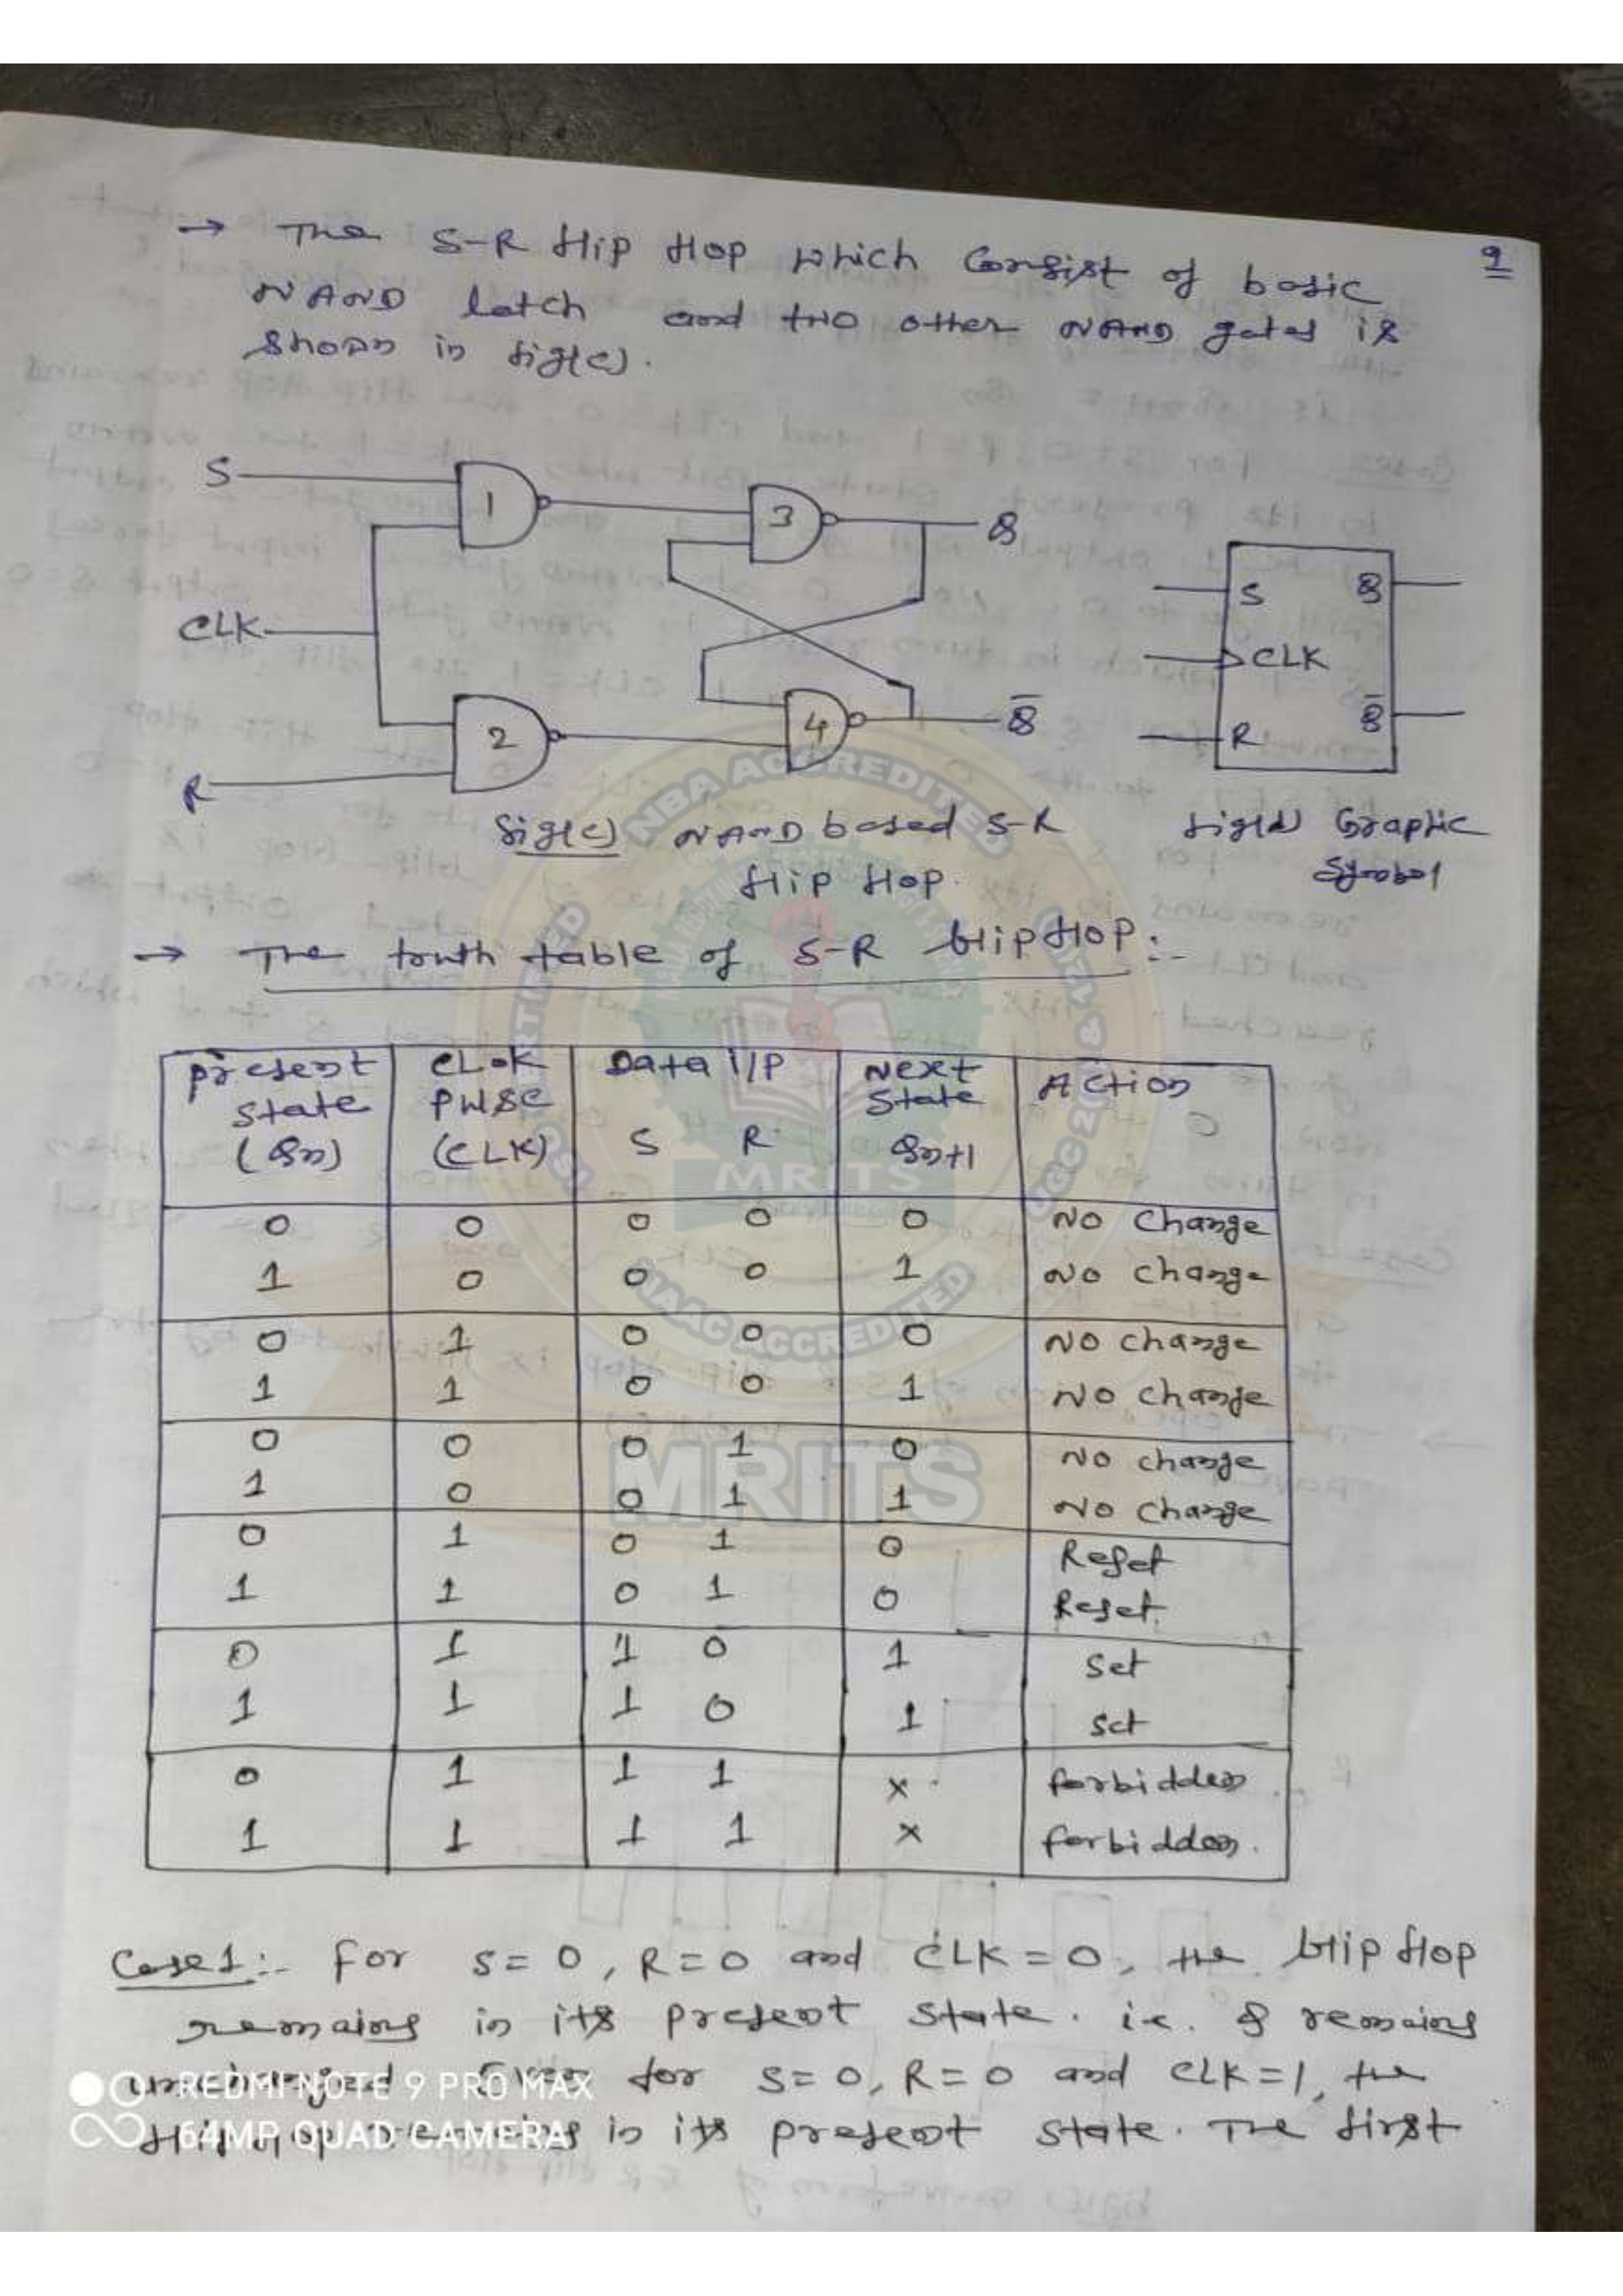 → The S-R flip flop which consist of basic 9
NAND latch and two other NAND gates is
shown in fig(c).
S 1 3 Q
CLK
2 4 Q̅
R
S Q
CLK
R Q̅
fig(c) NAND based S-R
flip flop.
fig(d) Graphic
Symbol
→ The truth table of S-R flip flop:-
present state (Qn) CLOK PULSE (CLK) Data i/P S R Next State Qn+1 Action
0 0 0 0 0 No change
1 0 0 0 1 No change
0 1 0 0 0 No change
1 1 0 0 1 No change
0 0 0 1 0 No change
1 0 0 1 1 No change
0 1 0 1 0 Reset
1 1 0 1 0 Reset
0 1 1 0 1 Set
1 1 1 0 1 Set
0 1 1 1 x forbidden
1 1 1 1 x forbidden.
Case1:- For S=0, R=0 and CLK=0, the flip flop
remains in its present state. i.e. Q remains
unchanged. Even for S=0, R=0 and CLK=1, the
flip flop remains in its present state. The first
NBA ACCREDITED
NAAC ACCREDITED
MRITS
MRITS
REDMI NOTE 9 PRO MAX
64MP QUAD CAMERA